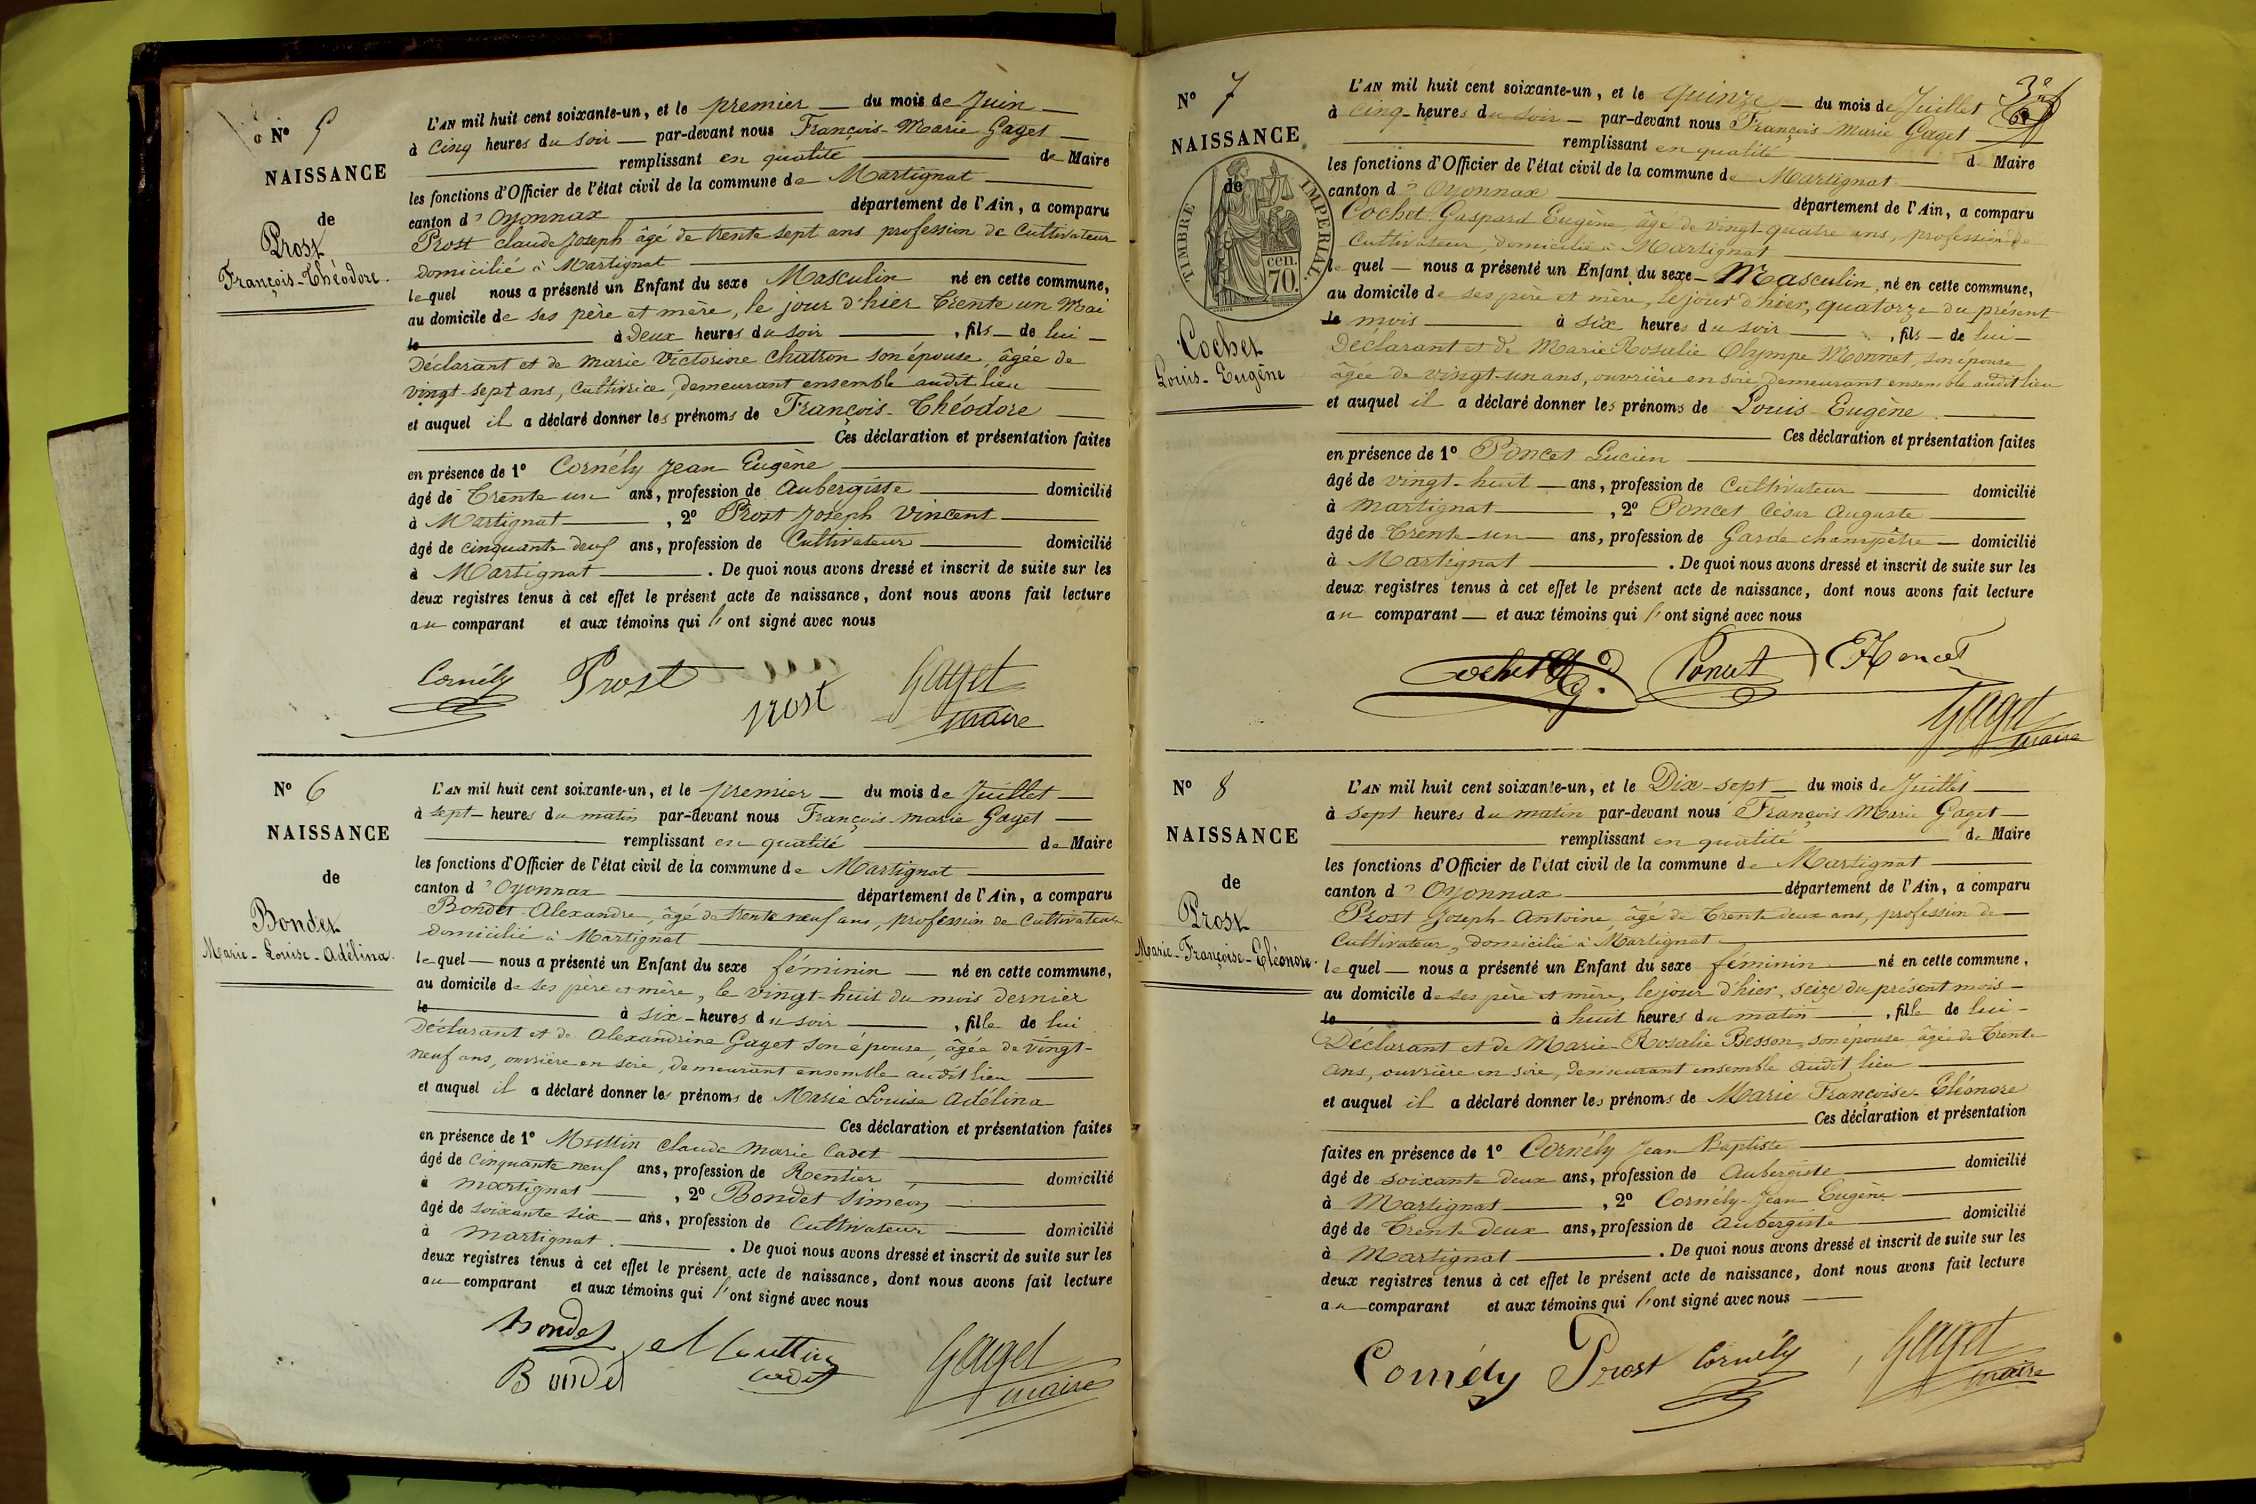 N° 5
NAISSANCE
de
Prost
François-Théodore.
L'AN mil huit cent soixante-un, et le premier du mois de Juin
à cinq heures du soir par-devant nous François-Marie Gaget
remplissant en qualité de Maire
les fonctions d'Officier de l'état civil de la commune de Martignat
canton d'Oyonnax département de l'Ain, a comparu
Prost claude Joseph âgé de trente sept ans profession de Cultivateur
domicilié à Martignat
lequel nous a présenté un Enfant du sexe Masculin né en cette commune,
au domicile de ses père et mère, le jour d'hier Trente un Mai
le à Deux heures du soir, fils de lui
Déclarant et de Marie Victorine Chatron son épouse, âgée de
vingt-sept ans, cultivrice, demeurant ensemble audit lieu
et auquel il a déclaré donner les prénoms de François-Théodore
Ces déclaration et présentation faites
en présence de 1° Cornély Jean Eugène
âgé de Trente un ans, profession de Aubergiste domicilié
à Martignat, 2° Prost Joseph Vincent
âgé de cinquante deux ans, profession de Cultivateur domicilié
à Martignat. De quoi nous avons dressé et inscrit de suite sur les
deux registres tenus à cet effet le présent acte de naissance, dont nous avons fait lecture
au comparant et aux témoins qui l'ont signé avec nous
Cornély Prost prost Gaget
maire
N° 6
NAISSANCE
de
Bondet
Marie-Louise-Adélina.
L'AN mil huit cent soixante-un, et le premier du mois de Juillet
à sept heures du matin par-devant nous François-Marie Gaget
remplissant en qualité de Maire
les fonctions d'Officier de l'état civil de la commune de Martignat
canton d'Oyonnax département de l'Ain, a comparu
Bondet Alexandre, âgé de trente neuf ans, profession de Cultivateur
domicilié à Martignat
lequel nous a présenté un Enfant du sexe féminin né en cette commune,
au domicile de ses père et mère, le vingt-huit du mois dernier
le à six heures du soir, fille de lui
Déclarant et de Alexandrine Gaget son épouse, âgée de vingt-
neuf ans, ouvrière en soie, demeurant ensemble audit lieu
et auquel il a déclaré donner les prénoms de Marie Louise Adélina
Ces déclaration et présentation faites
en présence de 1° claude Marie Cadet
âgé de cinquante neuf ans, profession de Rentier domicilié
à Martignat, 2° Bondet Siméon
âgé de soixante six ans, profession de Cultivateur domicilié
à Martignat. De quoi nous avons dressé et inscrit de suite sur les
deux registres tenus à cet effet le présent acte de naissance, dont nous avons fait lecture
au comparant et aux témoins qui l'ont signé avec nous
Bondet Gaget
Bondet cadet maire
N° 7
NAISSANCE
de
TIMBRE IMPERIAL
cen.
70.
Cochet
Louis-Eugène
L'AN mil huit cent soixante-un, et le quinze du mois de Juillet
à cinq heures du soir par-devant nous François Marie Gaget
remplissant en qualité de Maire
les fonctions d'Officier de l'état civil de la commune de Martignat
canton d'Oyonnax département de l'Ain, a comparu
Cochet Gaspard Eugène, âgé de vingt-quatre ans, profession de
Cultivateur, domicilié à Martignat
lequel nous a présenté un Enfant du sexe Masculin, né en cette commune,
au domicile de ses père et mère, le jour d'hier, quatorze du présent
le mois à six heures du soir, fils de lui
Déclarant et de Marie Rosalie Olympe Monnet, son épouse
âgée de vingt-un ans, ouvrière en soie, demeurant ensemble audit lieu
et auquel il a déclaré donner les prénoms de Louis Eugène
Ces déclaration et présentation faites
en présence de 1° Poncet Lucien
âgé de vingt-huit ans, profession de Cultivateur domicilié
à Martignat, 2° Poncet César Auguste
âgé de Trente-un ans, profession de Garde champêtre domicilié
à Martignat. De quoi nous avons dressé et inscrit de suite sur les
deux registres tenus à cet effet le présent acte de naissance, dont nous avons fait lecture
au comparant et aux témoins qui l'ont signé avec nous
Cochet Poncet Poncet
Gaget
maire
N° 8
NAISSANCE
de
Prost
Marie-Françoise-Eléonore.
L'AN mil huit cent soixante-un, et le Dix-sept du mois de Juillet
à sept heures du matin par-devant nous François Marie Gaget
remplissant en qualité de Maire
les fonctions d'Officier de l'état civil de la commune de Martignat
canton d'Oyonnax département de l'Ain, a comparu
Prost Joseph-Antoine, âgé de Trente deux ans, profession de
Cultivateur, domicilié à Martignat
lequel nous a présenté un Enfant du sexe féminin né en cette commune,
au domicile de ses père et mère, le jour d'hier, seize du présent mois
le à huit heures du matin, fille de lui
Déclarant et de Marie-Rosalie Besson, son épouse âgée de Trente
ans, ouvrière en soie, demeurant ensemble audit lieu
et auquel il a déclaré donner les prénoms de Marie Françoise-Eléonore
Ces déclaration et présentation
faites en présence de 1° Cornély Jean Baptiste
âgé de soixante deux ans, profession de Aubergiste domicilié
à Martignat, 2° Cornély Jean Eugène
âgé de Trente deux ans, profession de Aubergiste domicilié
à Martignat. De quoi nous avons dressé et inscrit de suite sur les
deux registres tenus à cet effet le présent acte de naissance, dont nous avons fait lecture
au comparant et aux témoins qui l'ont signé avec nous
Cornély Prost Cornély Gaget
maire